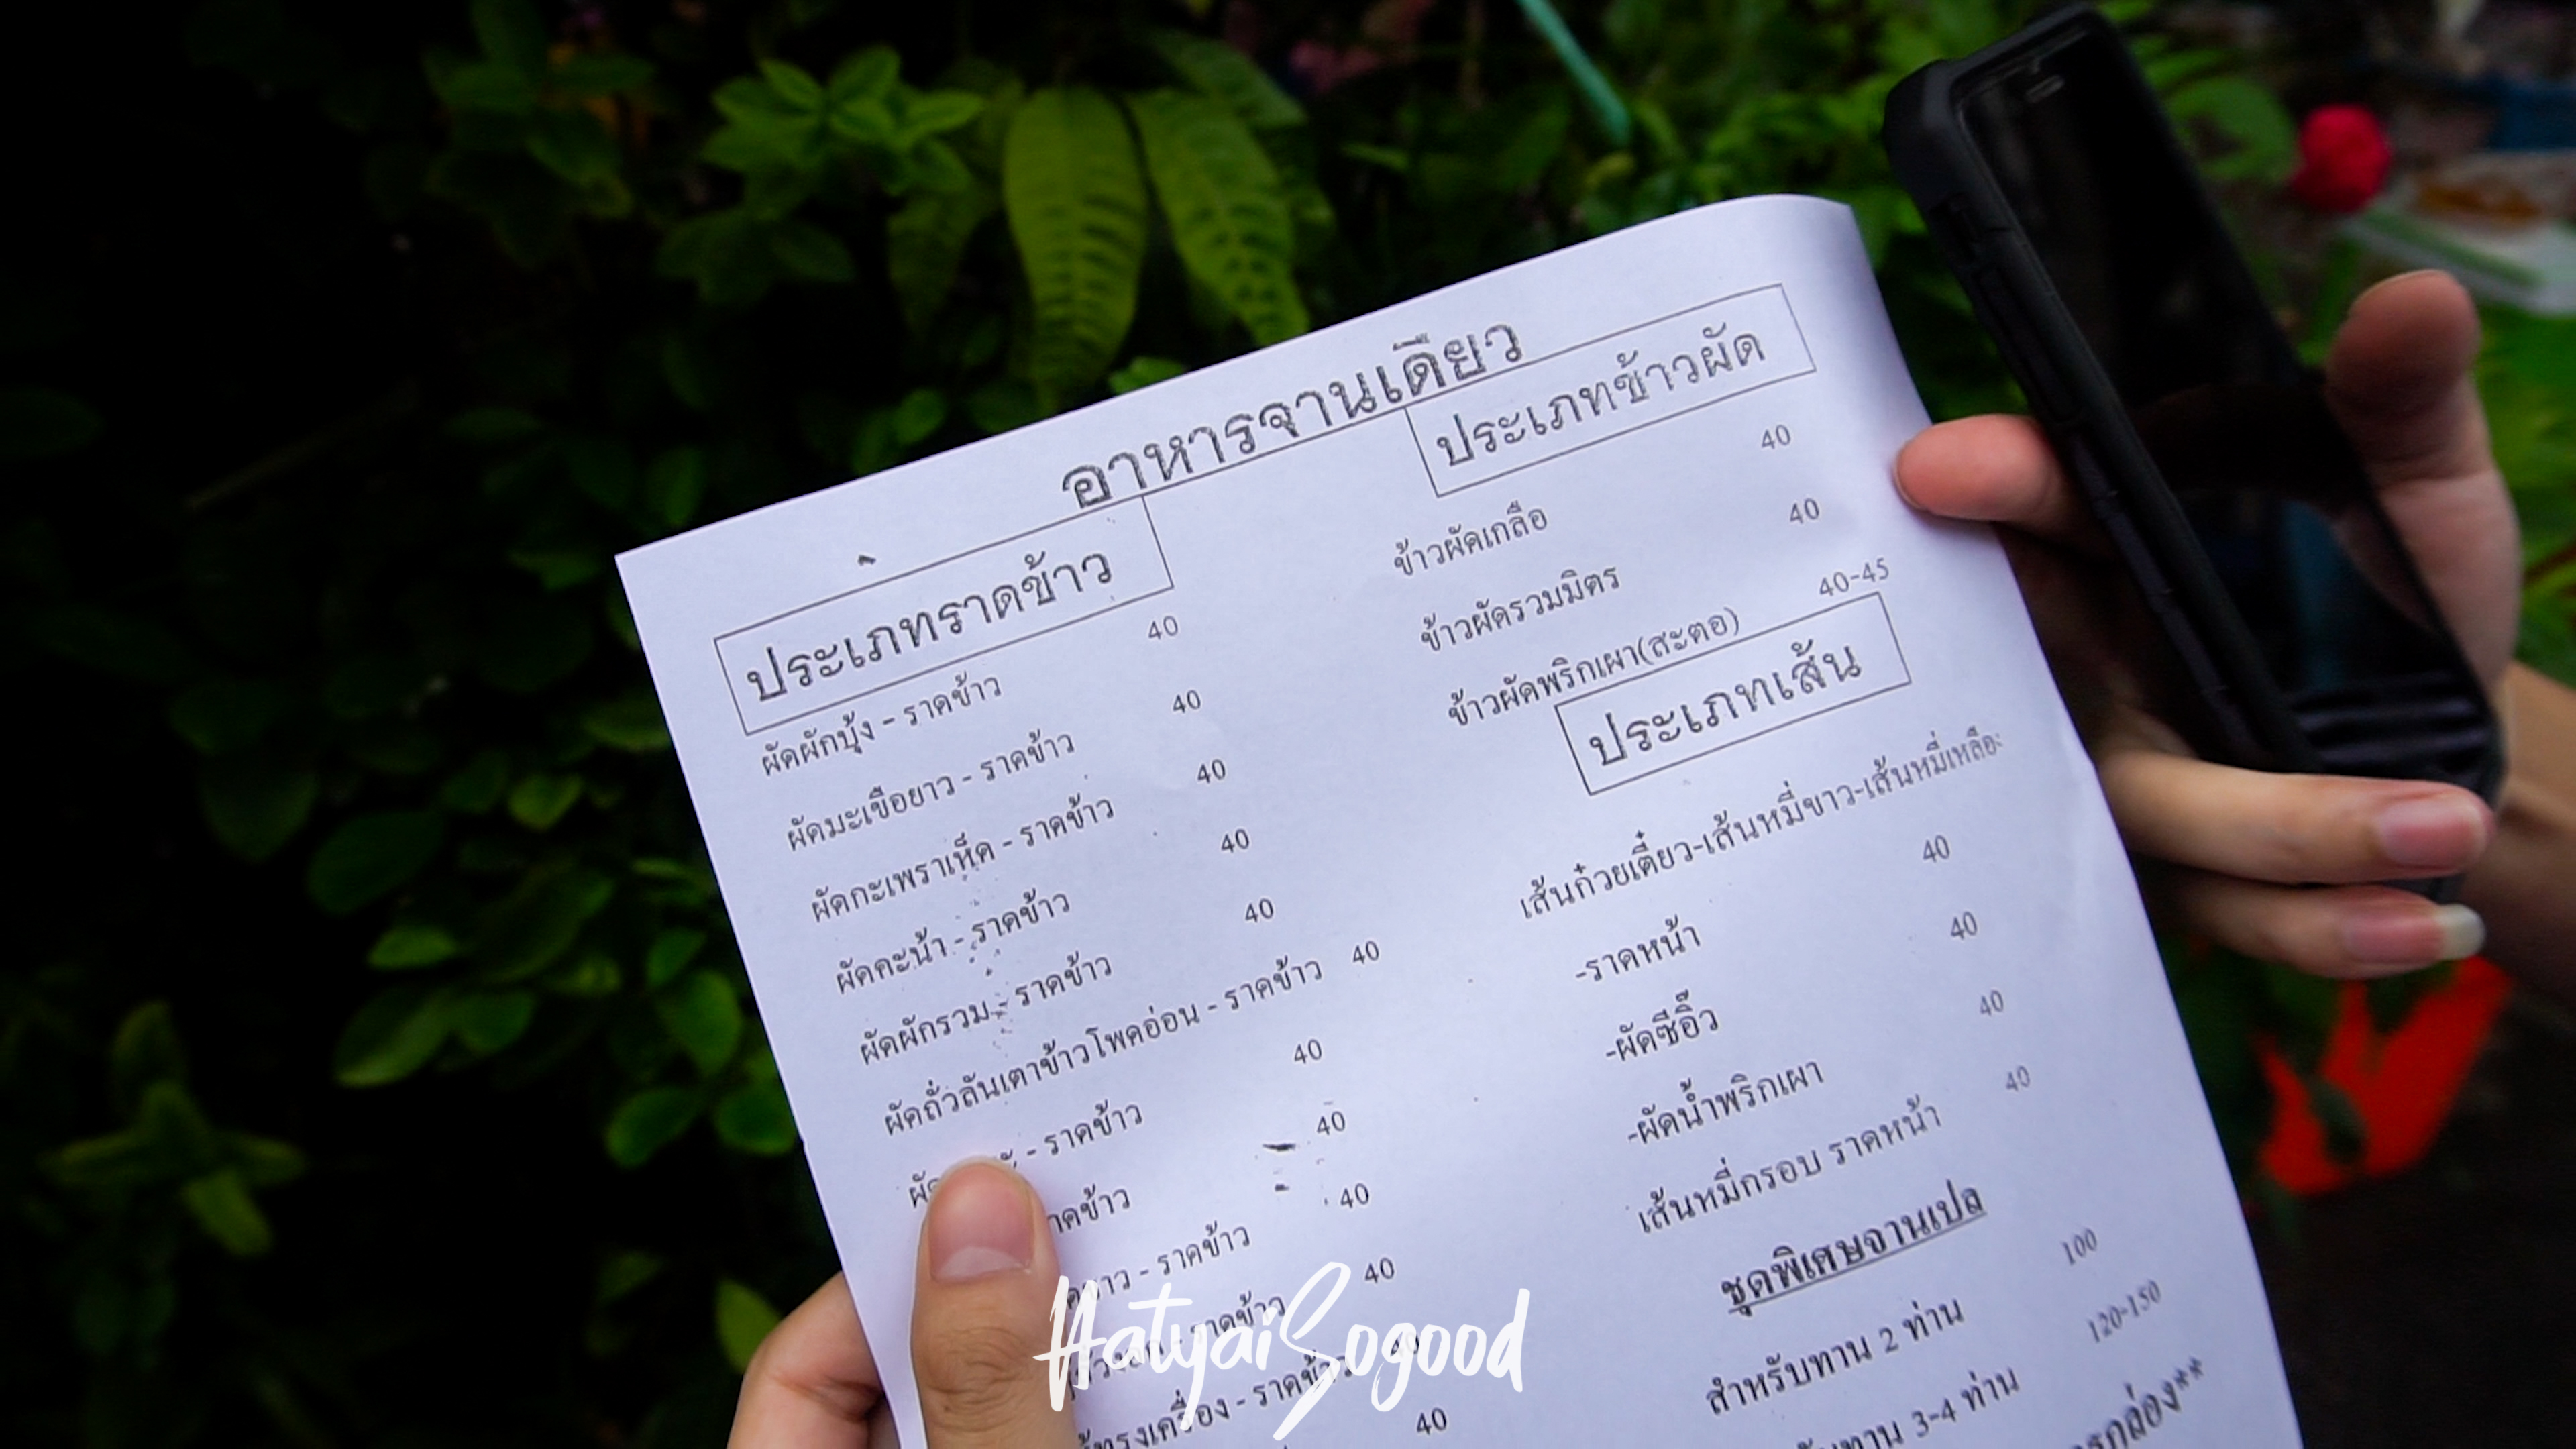 อาหารจานเดียว
ประเภทราดข้าว
ผัดผักบุ้ง - ราดข้าว 40
ผัดมะเขือยาว - ราดข้าว 40
ผัดกะเพราเห็ด - ราดข้าว 40
ผัดคะน้า - ราดข้าว 40
ผัดผักรวม - ราดข้าว 40
ผัดถั่วลันเตาข้าวโพดอ่อน - ราดข้าว 40
- ราดข้าว 40
ราดข้าว 40
- ราดข้าว 40
- ราดข้าว 40
ทรงเครื่อง - ราดข้าว 40
40
ประเภทข้าวผัด
40
ข้าวผัดเกลือ 40
ข้าวผัดรวมมิตร
ข้าวผัดพริกเผา(สะตอ) 40-45
ประเภทเส้น
เส้นก๋วยเตี๋ยว-เส้นหมี่ขาว-เส้นหมี่เหลือ
-ราดหน้า 40
-ผัดซีอิ๊ว 40
-ผัดน้ำพริกเผา 40
เส้นหมี่กรอบ ราดหน้า 40
ชุดพิเศษจานเปล
สำหรับทาน 2 ท่าน 100
ทาน 3-4 ท่าน 120-150
กล่อง**
HatyaiSogood